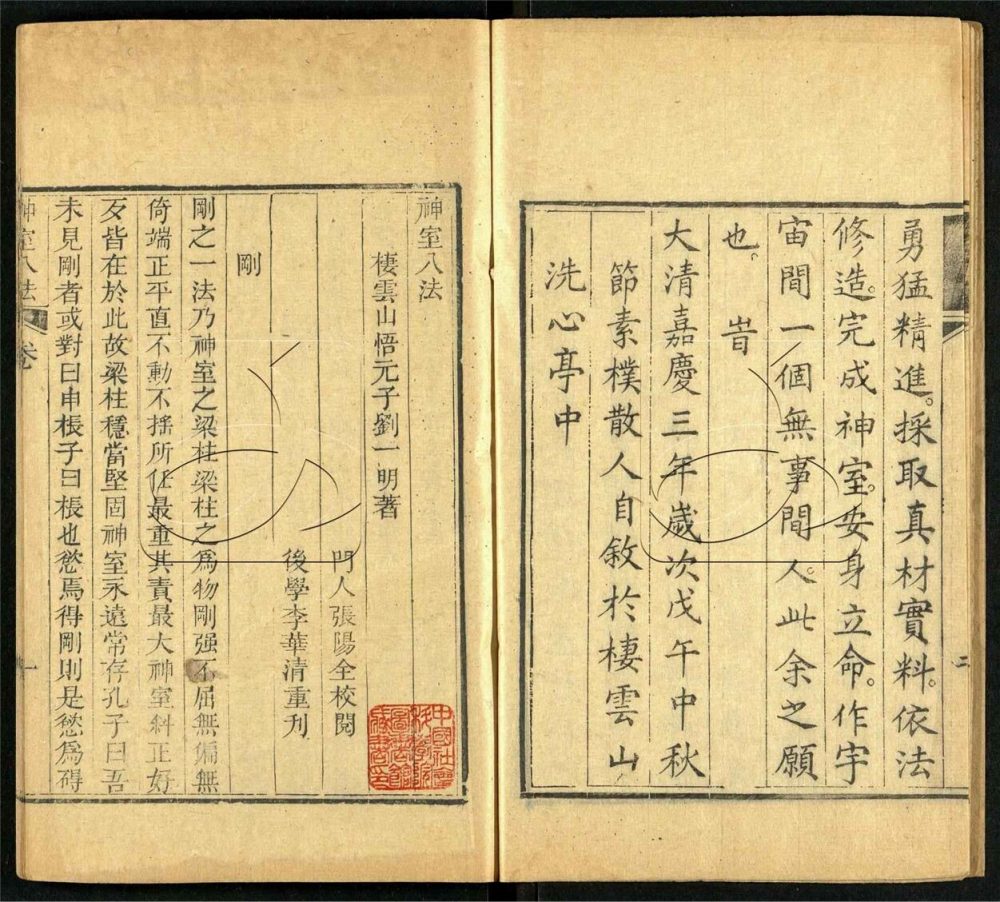 勇猛精進。採取真材實料。依法
修造。完成神室。安身立命。作宇
宙間一個無事閒人。此余之願
也。旹
大清嘉慶三年歲次戊午中秋
節素樸散人自敘於棲雲山
洗心亭中
二
神室八法
棲雲山悟元子劉一明著
門人張陽全校閱
後學李華清重刋
剛
剛之一法乃神室之梁柱梁柱之爲物剛强不屈無偏無
倚端正平直不動不搖所任最重其責最大神室斜正好
歹皆在於此故梁柱穩當堅固神室永遠常存孔子曰吾
未見剛者或對曰申棖子曰棖也慾焉得剛則是慾爲碍
神室八法
卷
一